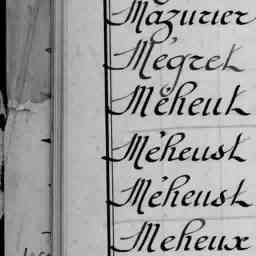 Mazurier
Mégret
Méheut
Méheust
Méheust
Meheux